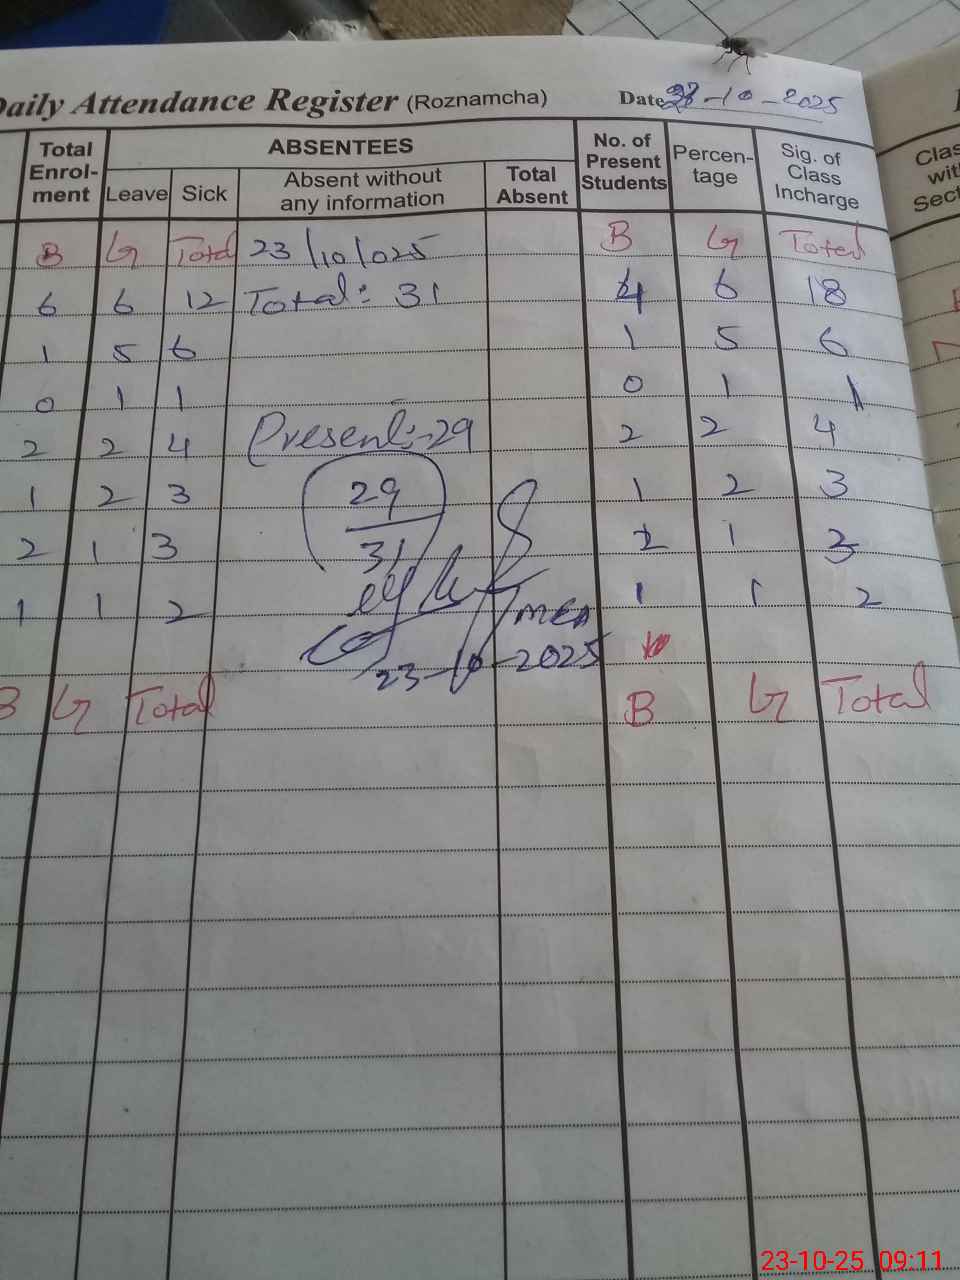 Daily Attendance Register (Roznamcha) Date 23-10-2025
Total Enrol-ment ABSENTEES No. of Present Students Percen-tage Sig. of Class Incharge
Leave Sick Absent without any information Total Absent
Clas
wit
Sect
B G Total 23/10/025 B G Total
6 6 12 Total: 31 4 6 18
1 5 6 1 5 6
0 1 1 0 1 1
2 2 4 Present:-29 2 2 4
1 2 3 29 1 2 3
2 1 3 31 1 3
1 1 2 1 1 2
MEA
23-10-2025
B G Total B G Total
23-10-25 09:11